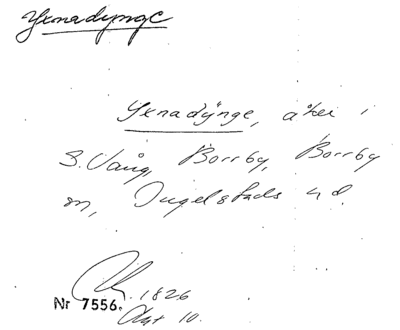 Yxnadynge
Yxnadynge, åker i
S. Vång, Borrby, Borrby
sn, Ingelstads hd.
1826
Nr 7556. Akt 10.